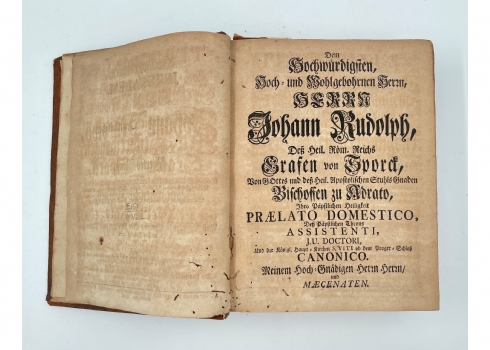 Dem
Hochwürdigsten,
Hoch- und Wohlgebohrnen Herrn,
HERRN
Johann Rudolph,
Deß Heil. Röm. Reichs
Grafen von Sporck,
Von GOttes und deß Heil. Apostolischen Stuhls Gnaden
Bischoffen zu Adrato,
Ihro Päpstlichen Heiligkeit
PRÆLATO DOMESTICO,
Deß Päpstlichen Throns
ASSISTENTI,
J.U. DOCTORI,
Und der Königl. Haupt-Kirchen S. VITI ob dem Prager-Schloß
CANONICO.
Meinem Hoch-Gnädigen Herrn Herrn/
und
MÆCENATEN.